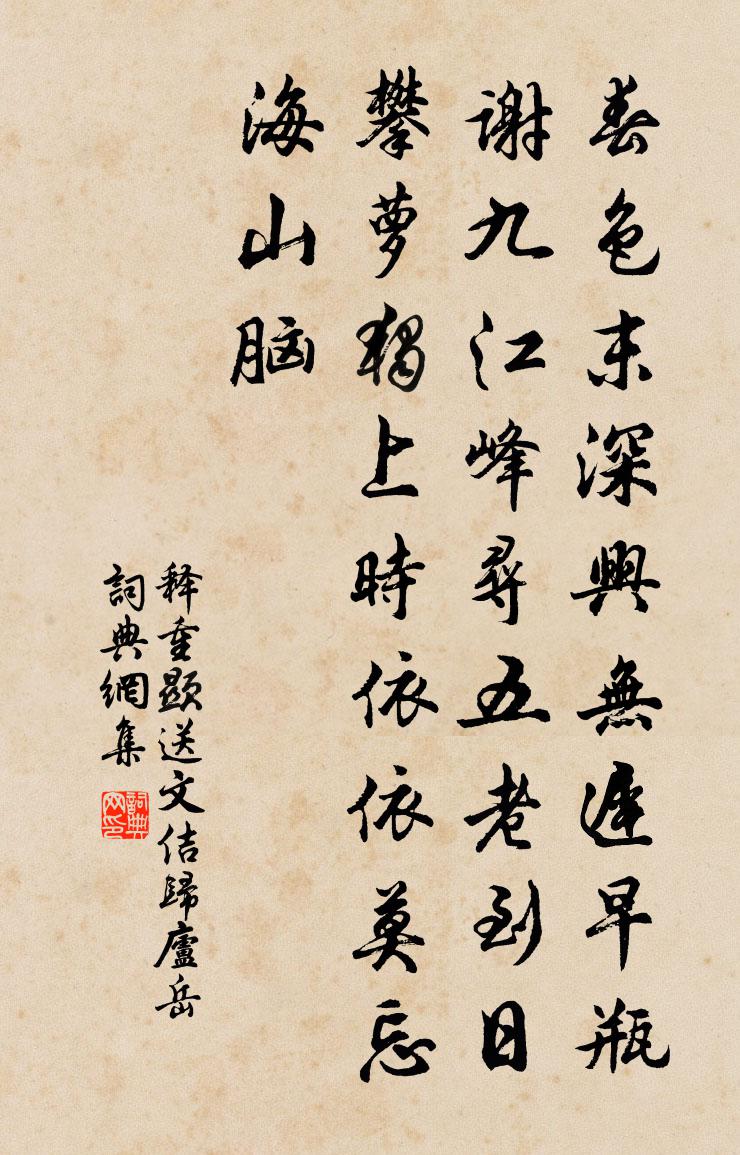 春色未深興無遲早瓶
謝九江峰尋五老到日
攀萝獨上時依依莫忘
海山脑
释重顯送文佶歸廬岳
詞典網集
詞典网印